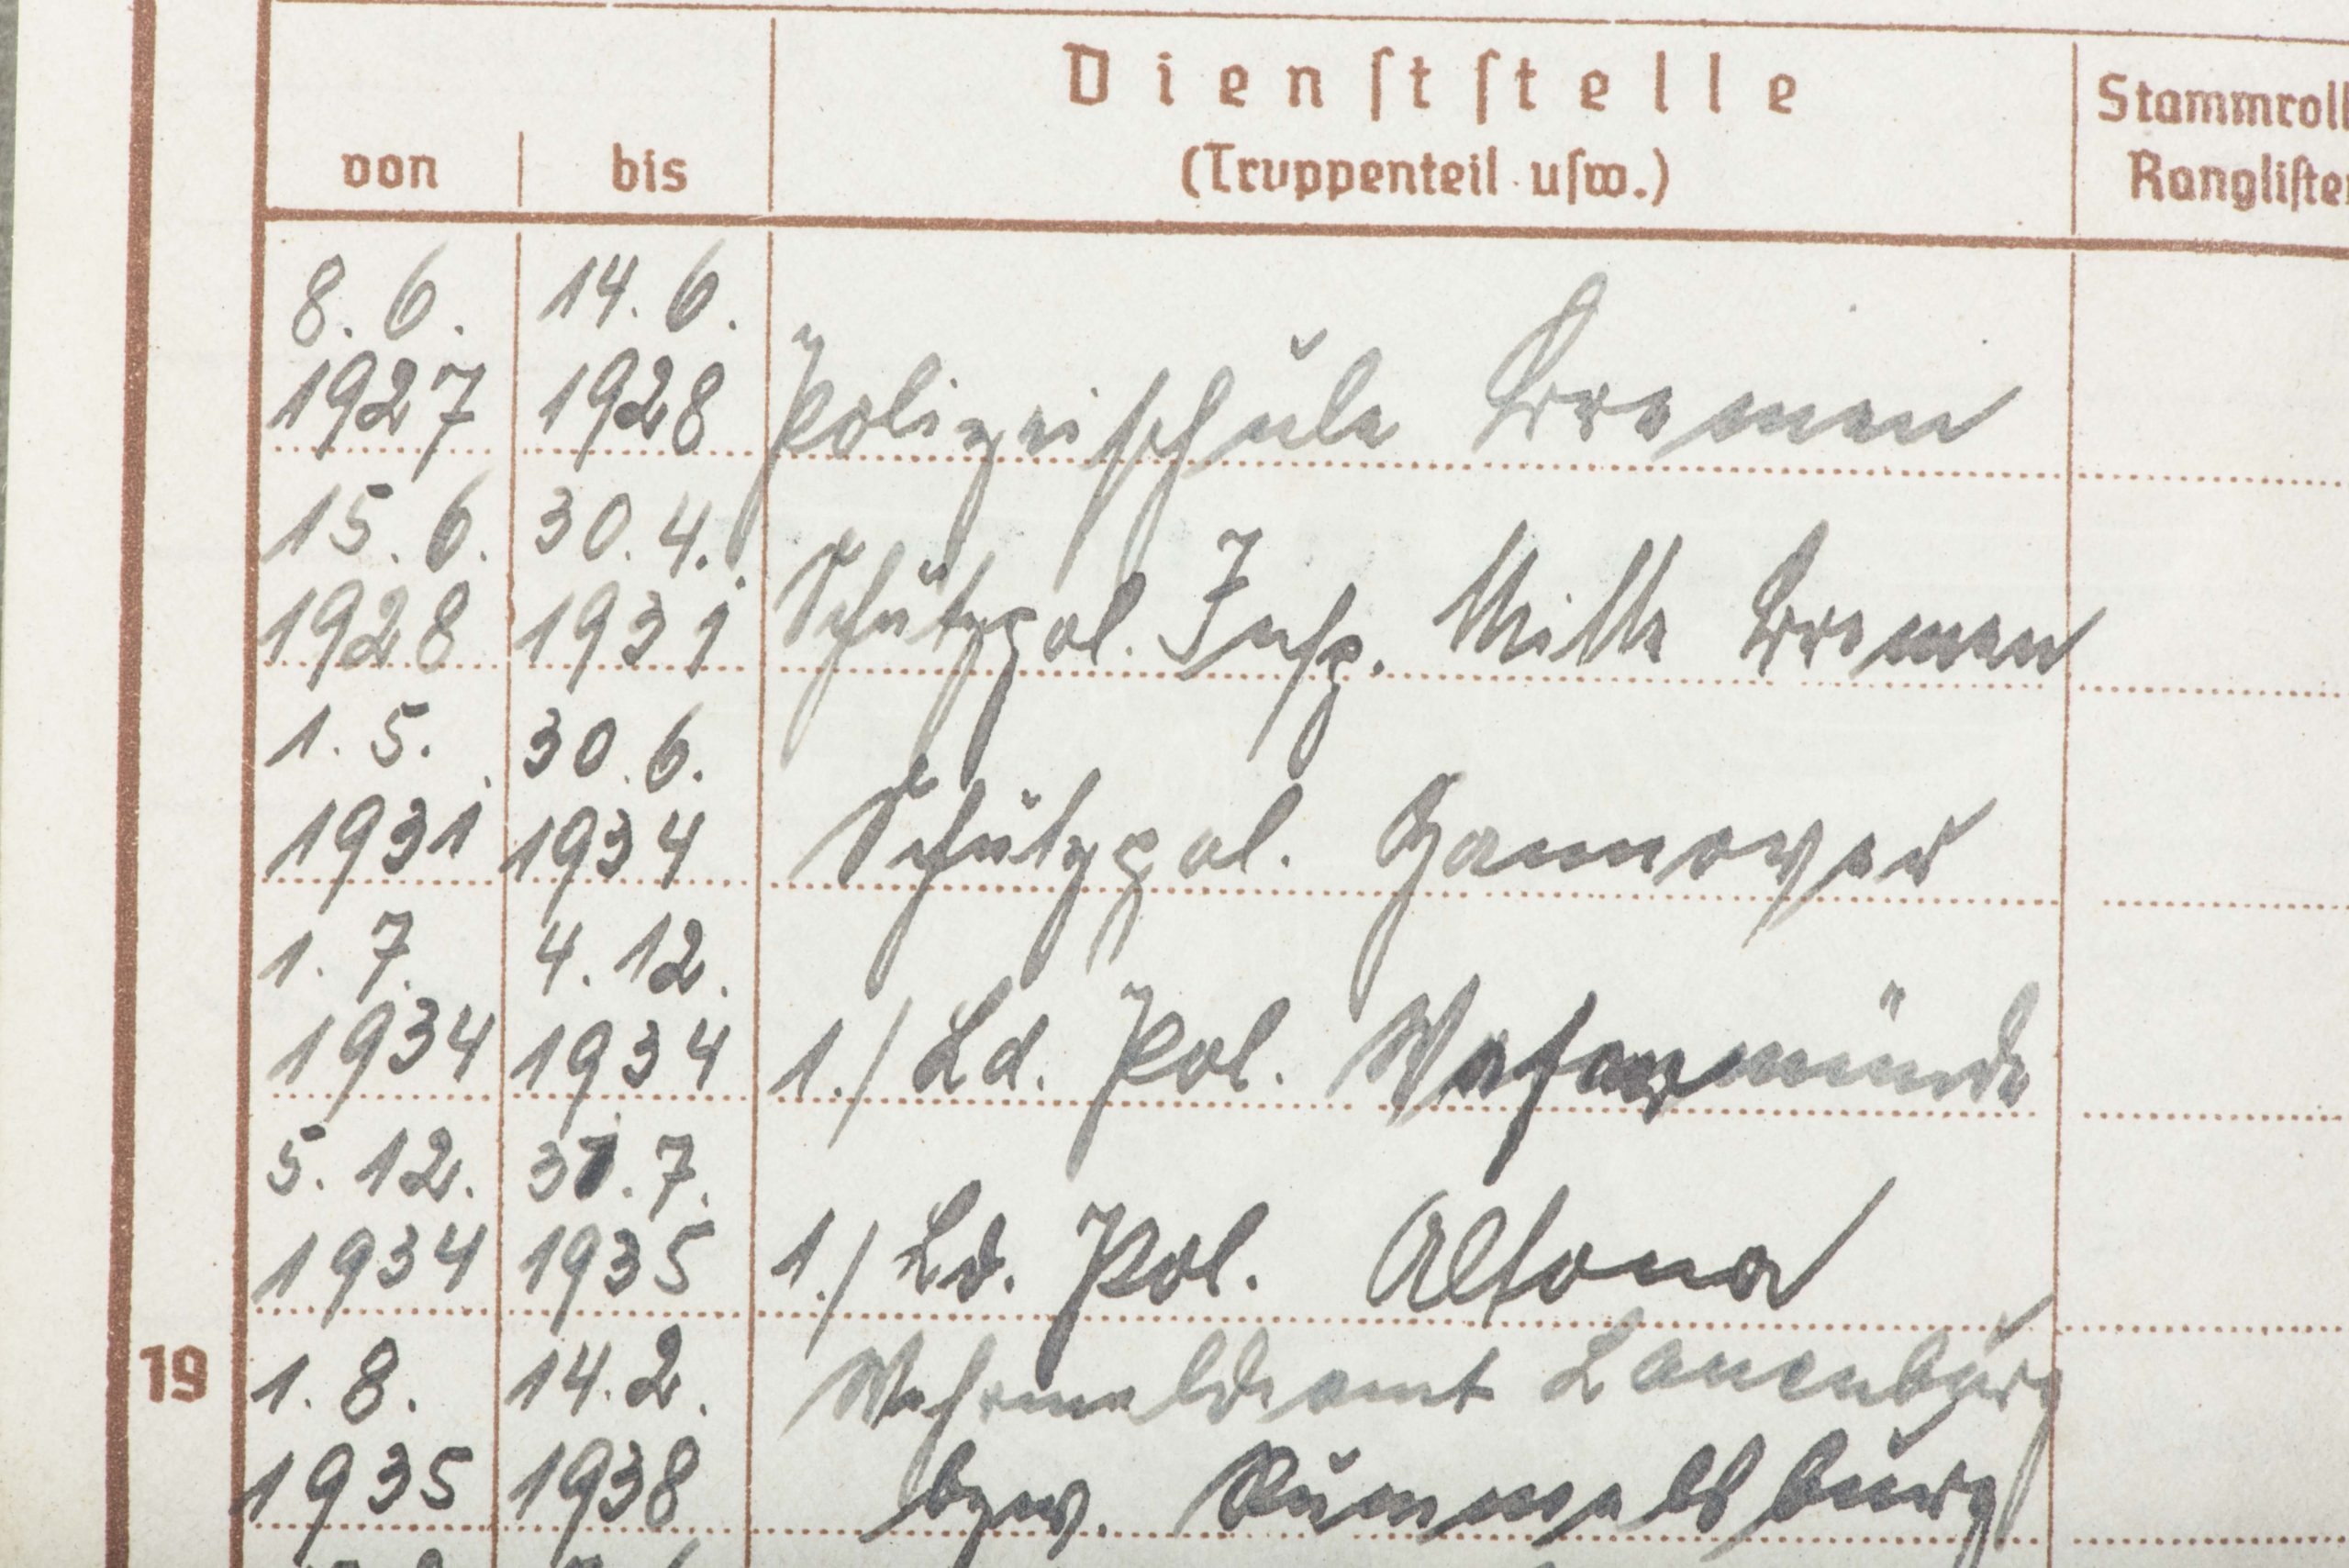 Dienststelle
Stammroll
von bis (Truppenteil usw.)
Ranglisten
8. 6. 14. 6.
1927 1928 Polizeischule Bremen
15. 6. 30. 4.
1928 1931 Schutzpol. Insp. Mitte Bremen
1. 5. 30. 6.
1931 1934 Schutzpol. Hannover
1. 7. 4. 12.
1934 1934 1./Ld. Pol. Wesermünde
5. 12. 31. 7.
1934 1935 1./Ld. Pol. Altona
19 1. 8. 14. 2. Wehrmeldeamt Lauenburg
1935 1938 bzw. Rummelsburg